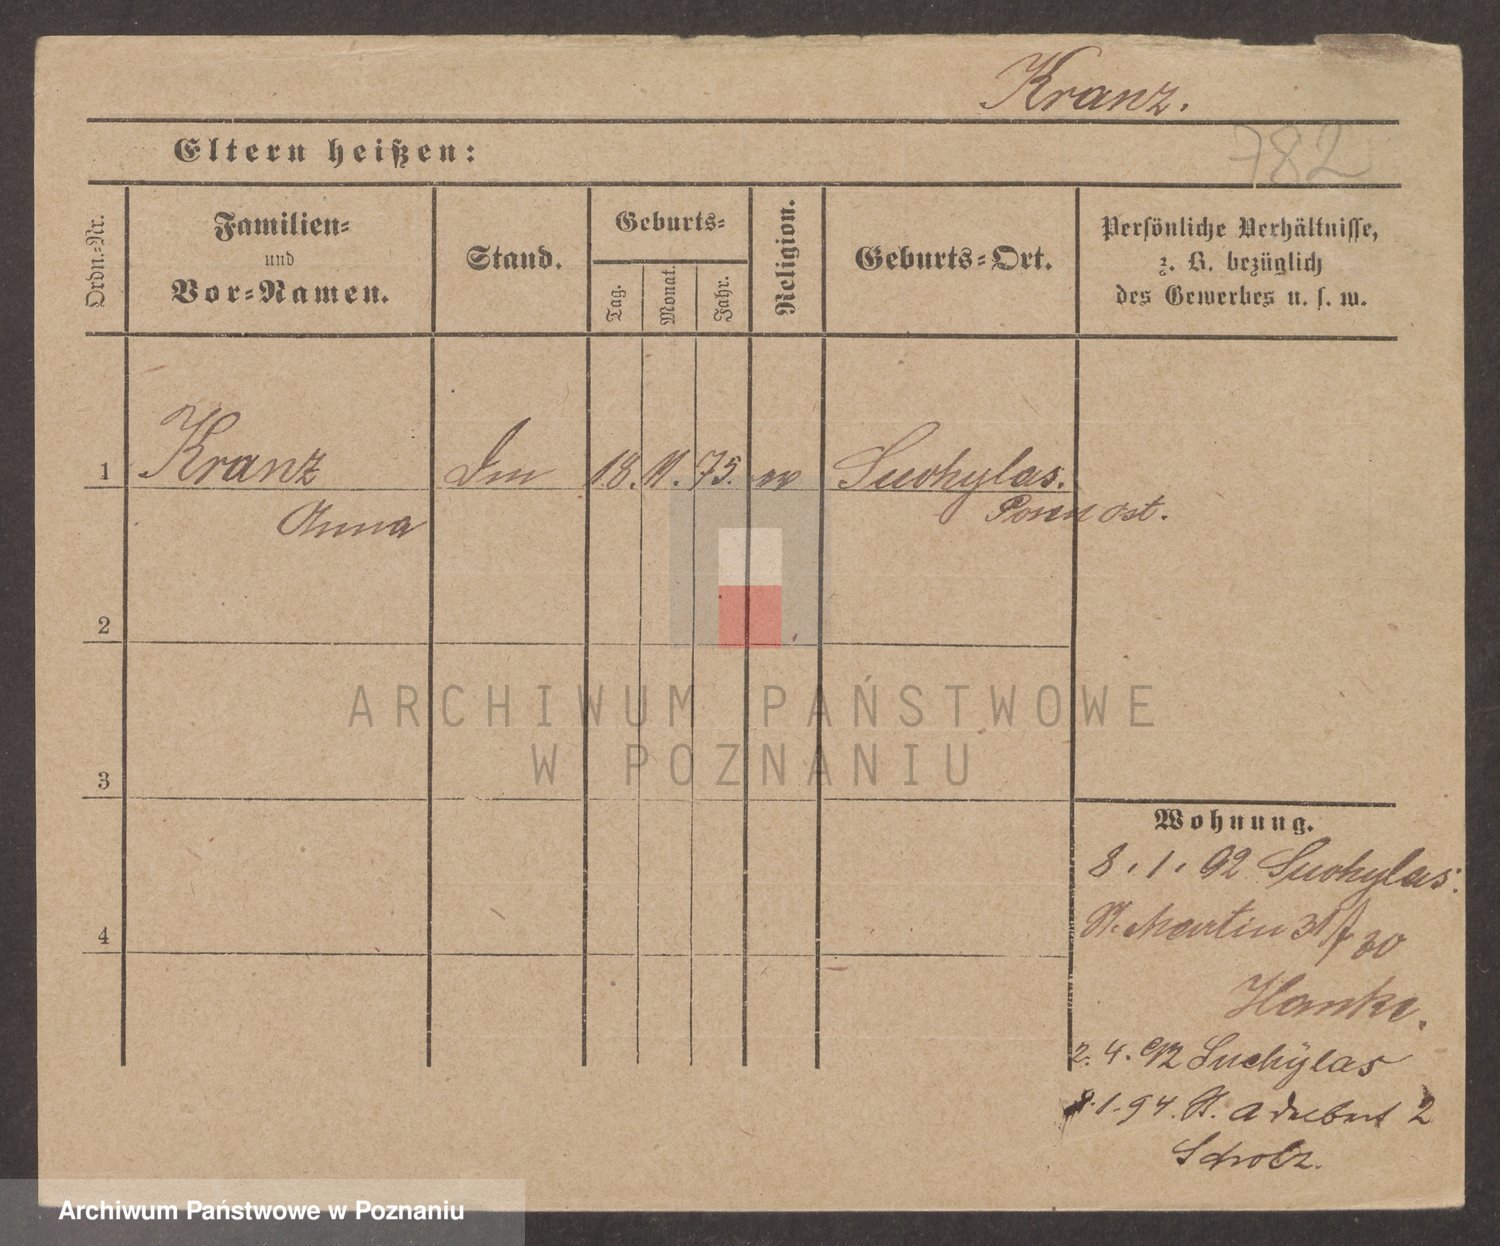 Kranz.
782
Eltern heißen:
Ordn.-Nr.
Familien-
und
Vor-Namen.
Stand.
Geburts-
Tag.
Monat.
Jahr.
Religion.
Geburts-Ort.
Persönliche Verhältnisse,
z. B. bezüglich
des Gewerbes u. s. w.
1 Kranz 18. 11. 75. ev Suchylas.
Anna Posen ost.
2
ARCHIWUM PAŃSTWOWE
W POZNANIU
3
Wohnung.
8. 1. 92 Suchylas.
St. Martin 30
4
Hanke.
2. 4. 92 Suchylas
1. 94. St. Adalbert 2
Scholz.
Archiwum Państwowe w Poznaniu